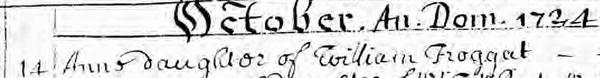 October. An. Dom. 1724
14 Anne daughter of William Froggat –